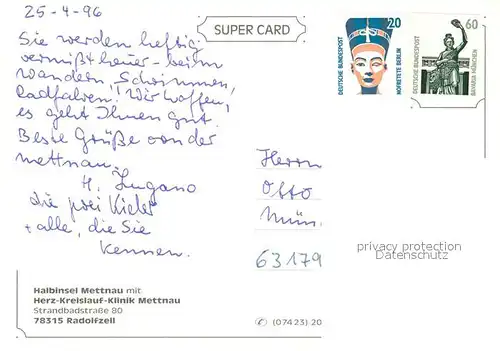 25-4-96
SUPER CARD
20
DEUTSCHE BUNDESPOST
NOFRETETE BERLIN
60
DEUTSCHE BUNDESPOST
BAVARIA MÜNCHEN
Sie werden heftig
vermißt heuer - beim
Wandern, Schwimmen,
Radfahren! Wir hoffen,
es geht Ihnen gut.
Beste Grüße von der
Mettnau
H. Lugano
die zwei Kieler
+ alle, die Sie
kennen.
Herrn
Otto
Mün.
63179
privacy protection
Datenschutz
Halbinsel Mettnau mit
Herz-Kreislauf-Klinik Mettnau
Strandbadstraße 80
78315 Radolfzell
✆ (07423) 20